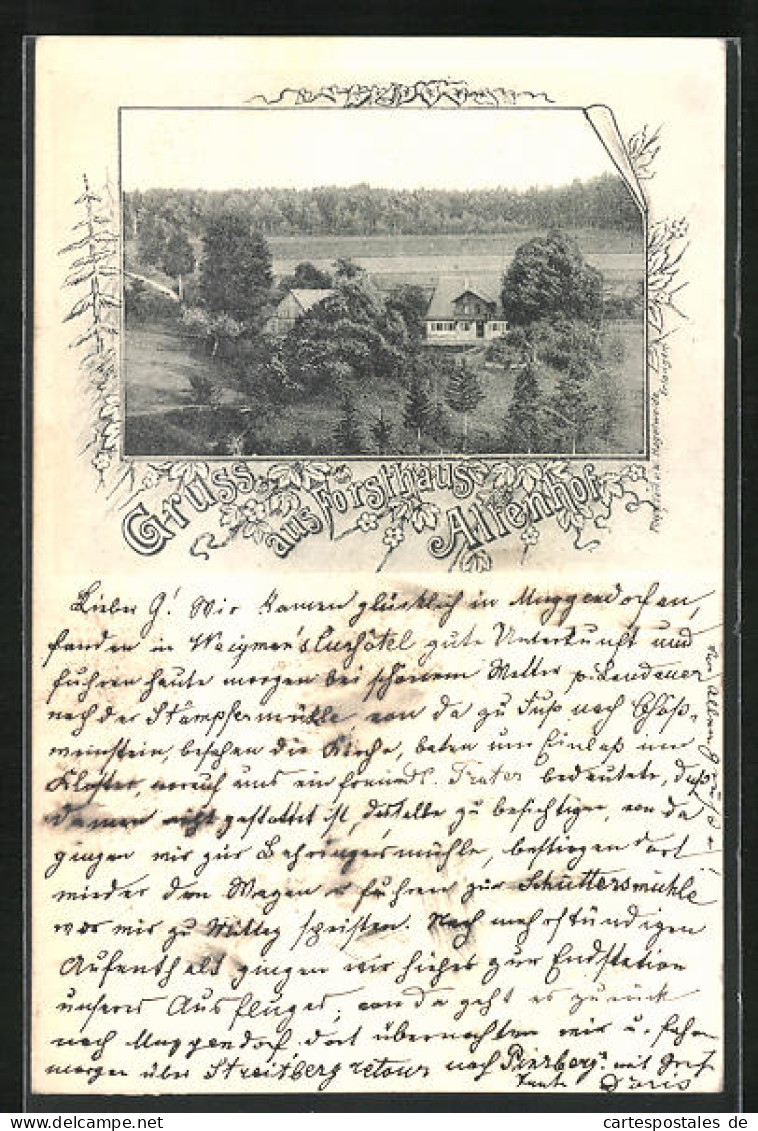 Gruss aus Forsthaus Altenhof
Lieber G! Wir kamen glücklich in Muggendorf an,
fanden in Waigman's Curhôtel gute Unterkunft und
fuhren heute morgen bei schönem Wetter p. Landauer
nach der Stampfermühle von da zu Fuß nach Göß-
weinstein, besahen die Kirche, baten um Einlaß im
Kloster, worauf uns ein freundl. Frater bedeutete, daß
Damen nicht gestattet ist, dasselbe zu besichtigen, von da
gingen wir zur Behringersmühle, bestiegen dort
wieder den Wagen u fuhren zur Schüttersmühle
wo wir zu Mittag speisten. Nach mehrstündigen
Aufenthalt gingen wir hieher zur Endstation
unseres Ausfluges, von da geht es zurück
nach Muggendorf, dort übernachten wir u. fahren
morgen über Streitberg retour nach
Tante Doris
Erlangen
www.cartespostales.de
cartespostales de